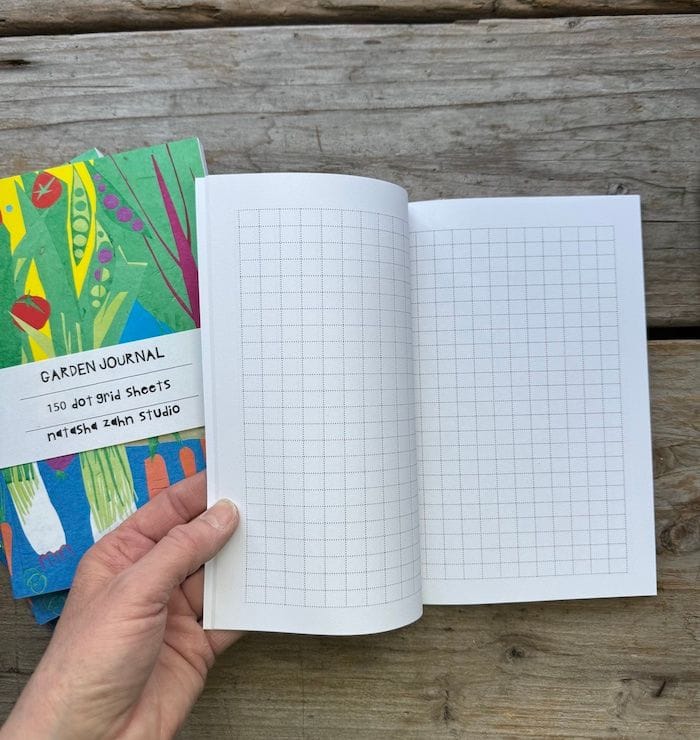 GARDEN JOURNAL
150 dot grid sheets
natasha zahn studio